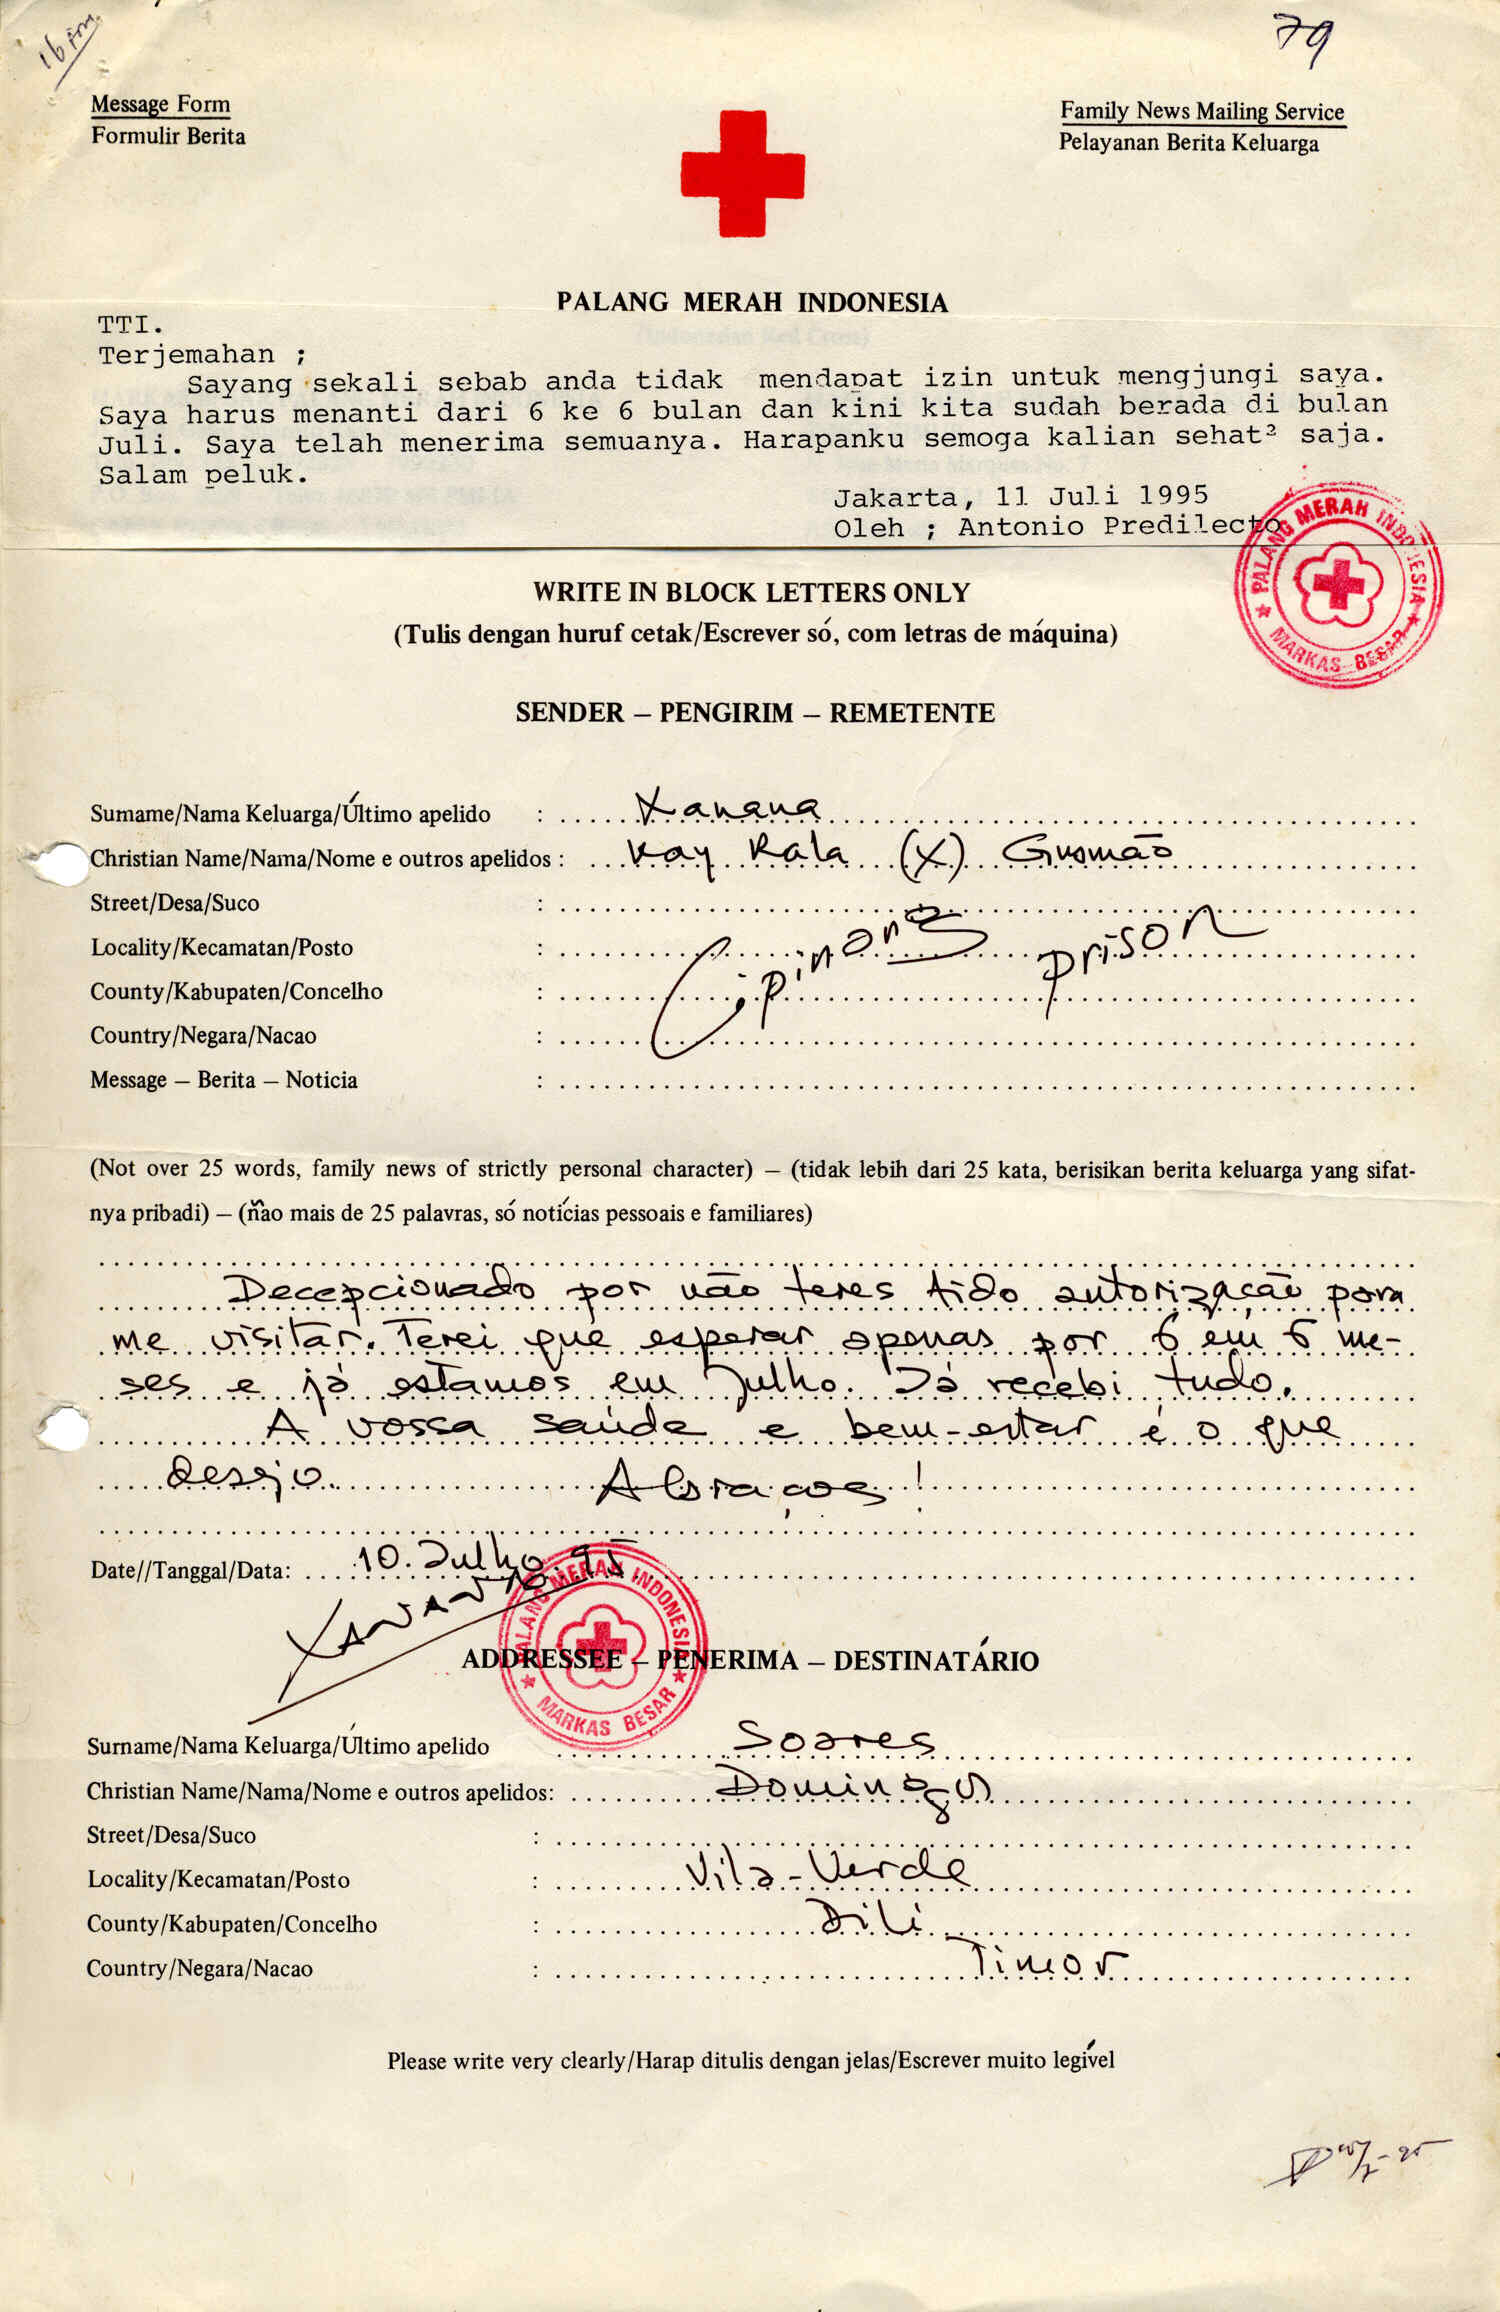 16 pm
79
Message Form
Formulir Berita
Family News Mailing Service
Pelayanan Berita Keluarga
PALANG MERAH INDONESIA
TTI.
Terjemahan ;
Sayang sekali sebab anda tidak mendapat izin untuk mengjungi saya.
Saya harus menanti dari 6 ke 6 bulan dan kini kita sudah berada di bulan
Juli. Saya telah menerima semuanya. Harapanku semoga kalian sehat² saja.
Salam peluk.
Jakarta, 11 Juli 1995
Oleh ; Antonio Predilecto
PALANG MERAH INDONESIA
MARKAS BESAR
WRITE IN BLOCK LETTERS ONLY
(Tulis dengan huruf cetak/Escrever só, com letras de máquina)
SENDER – PENGIRIM – REMETENTE
Surname/Nama Keluarga/Último apelido : Xanana
Christian Name/Nama/Nome e outros apelidos : Kay Rala (X) Gusmão
Street/Desa/Suco :
Locality/Kecamatan/Posto : Cipinang prison
County/Kabupaten/Concelho :
Country/Negara/Nacao :
Message – Berita – Noticia :
(Not over 25 words, family news of strictly personal character) – (tidak lebih dari 25 kata, berisikan berita keluarga yang sifat-
nya pribadi) – (ñao mais de 25 palavras, só notícias pessoais e familiares)
Decepcionado por não teres tido autorização para
me visitar. Terei que esperar apenas por 6 em 6 me-
ses e já estamos em Julho. Já recebi tudo.
A vossa saúde e bem-estar é o que
desejo. Abraços!
Date//Tanggal/Data: 10. Julho. 95
XANANA
PALANG MERAH INDONESIA
MARKAS BESAR
ADDRESSEE – PENERIMA – DESTINATÁRIO
Surname/Nama Keluarga/Último apelido Soares
Christian Name/Nama/Nome e outros apelidos: Domingos
Street/Desa/Suco :
Locality/Kecamatan/Posto : Vila-Verde
County/Kabupaten/Concelho : Dili
Country/Negara/Nacao : Timor
Please write very clearly/Harap ditulis dengan jelas/Escrever muito legível